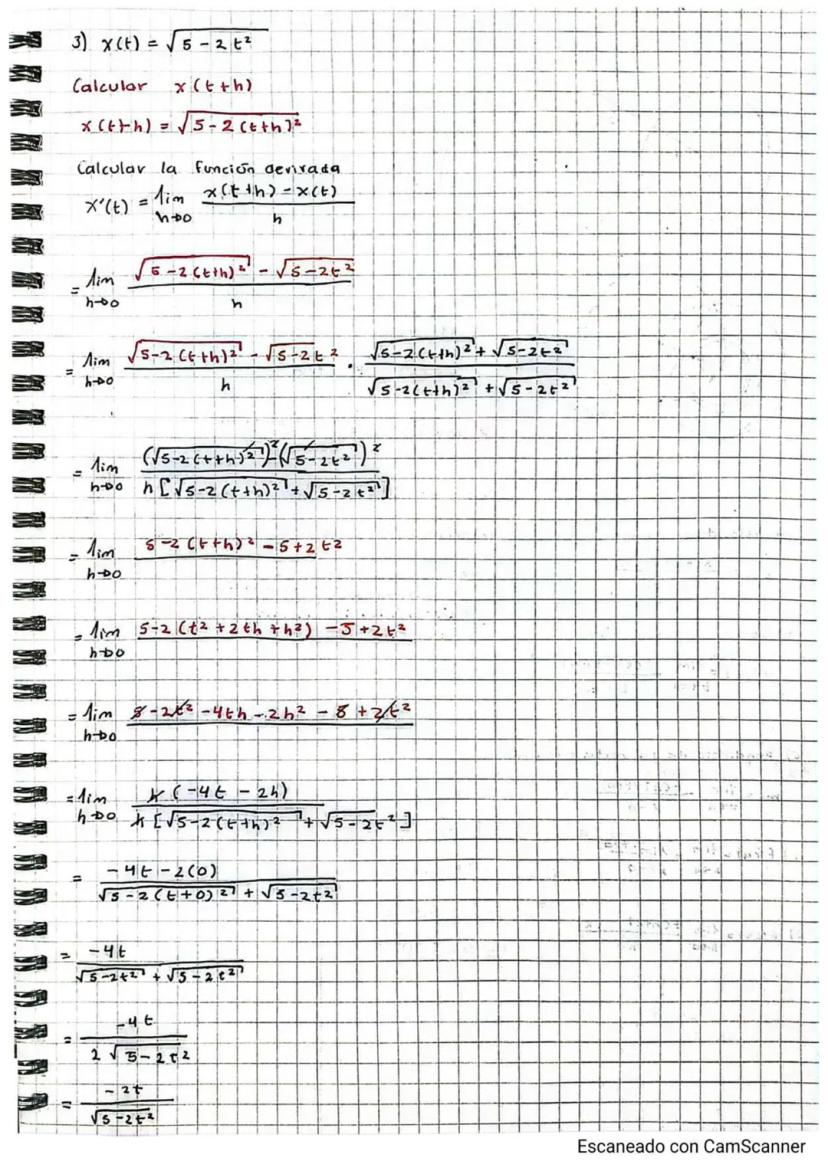 3) x(t) = √(5 - 2t²)
Calcular x(t+h)
x(t+h) = √(5 - 2(t+h)²)
Calcular la función derivada
x'(t) = lim h→0 (x(t+h) - x(t)) / h
= lim h→0 (√(5-2(t+h)²) - √(5-2t²)) / h
= lim h→0 (√(5-2(t+h)²) - √(5-2t²)) / h · (√(5-2(t+h)²) + √(5-2t²)) / (√(5-2(t+h)²) + √(5-2t²))
= lim h→0 ((√(5-2(t+h)²))² - (√(5-2t²))²) / (h[√(5-2(t+h)²) + √(5-2t²)])
= lim h→0 5-2(t+h)² - 5+2t²
= lim h→0 5-2(t² + 2th + h²) - 5 + 2t²
= lim h→0 5 - 2t² - 4th - 2h² - 5 + 2t²
= lim h→0 h(-4t - 2h) / (h[√(5-2(t+h)²) + √(5-2t²)])
= (-4t - 2(0)) / (√(5-2(t+0)²) + √(5-2t²))
= -4t / (√(5-2t²) + √(5-2t²))
= -4t / (2√(5-2t²))
= -2t / √(5-2t²)
Escaneado con CamScanner